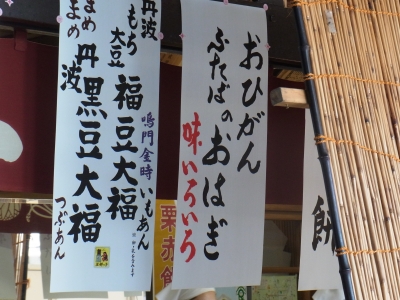 おひがん
ふたばのおはぎ
味いろいろ
餅
丹波
もち大豆
福豆大福
鳴門金時いもあん
まめ
まめ
丹波
黒豆大福
つぶあん
栗赤飯